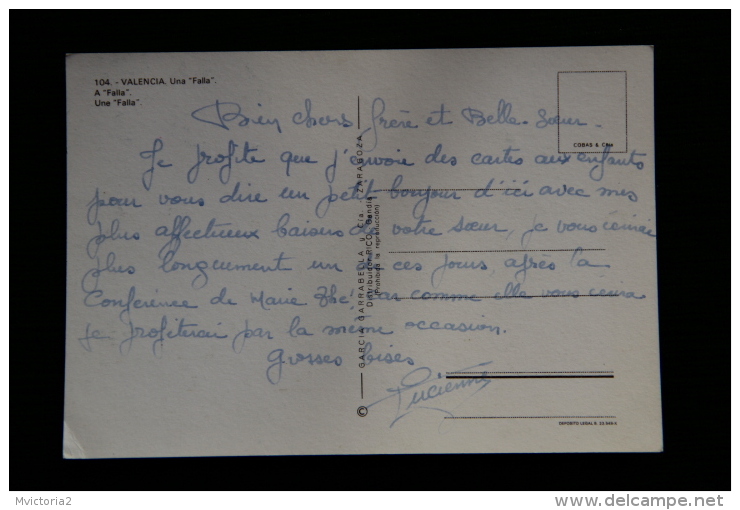 104. - VALENCIA. Una "Falla".
A "Falla".
Une "Falla".
COBAS & Cía
Bien chers frère et Belle-Sœur -
Je profite que j'envoie des cartes aux enfants
pour vous dire un petit bonjour d'ici avec mes
plus affectueux baisers de votre sœur, je vous écrirai
plus longuement un de ces jours, après la
Conférence de Marie Thé, car comme elle vous écrira
je profiterai par la même occasion.
Grosses bises
Lucienne
© GARCIA GARRABELLA y Cía. ZARAGOZA
Distribuidor: RICO
(Prohibida la reproducción)
DEPOSITO LEGAL
Mvictoria2
www.delcampe.net